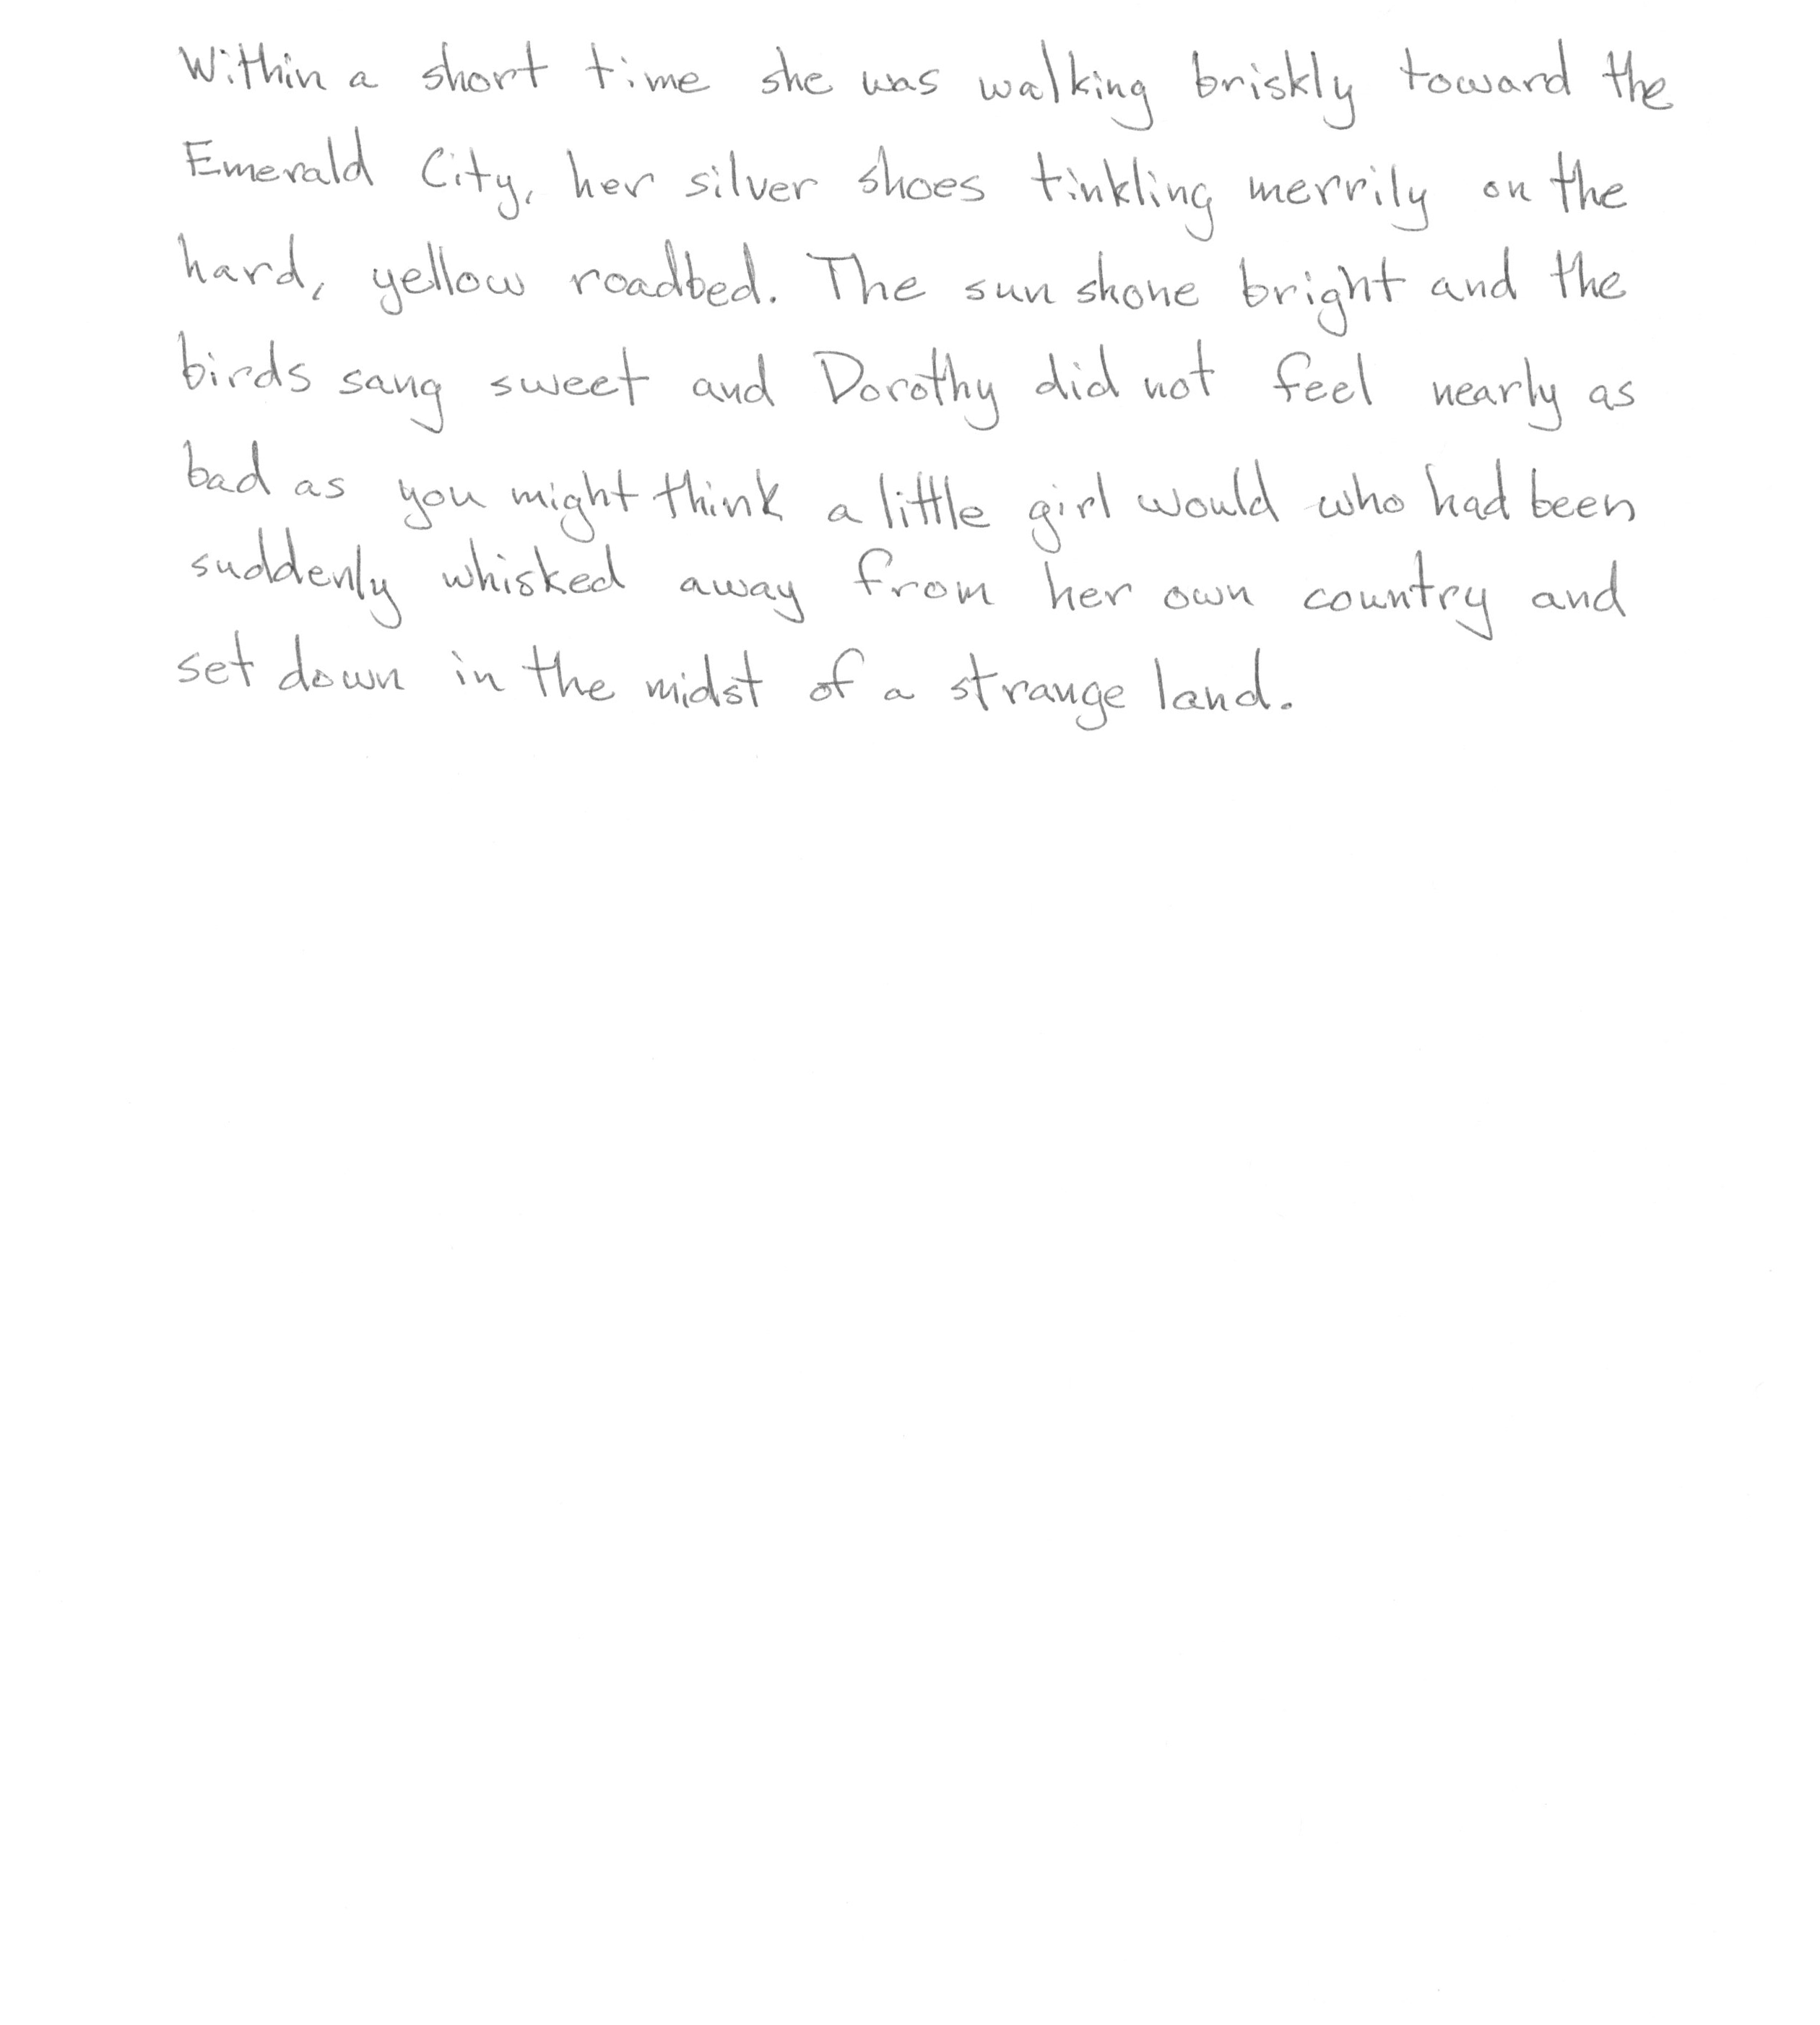 Within a short time she was walking briskly toward the
Emerald City, her silver shoes tinkling merrily on the
hard, yellow roadbed. The sun shone bright and the
birds sang sweet and Dorothy did not feel nearly as
bad as you might think a little girl would who had been
suddenly whisked away from her own country and
set down in the midst of a strange land.